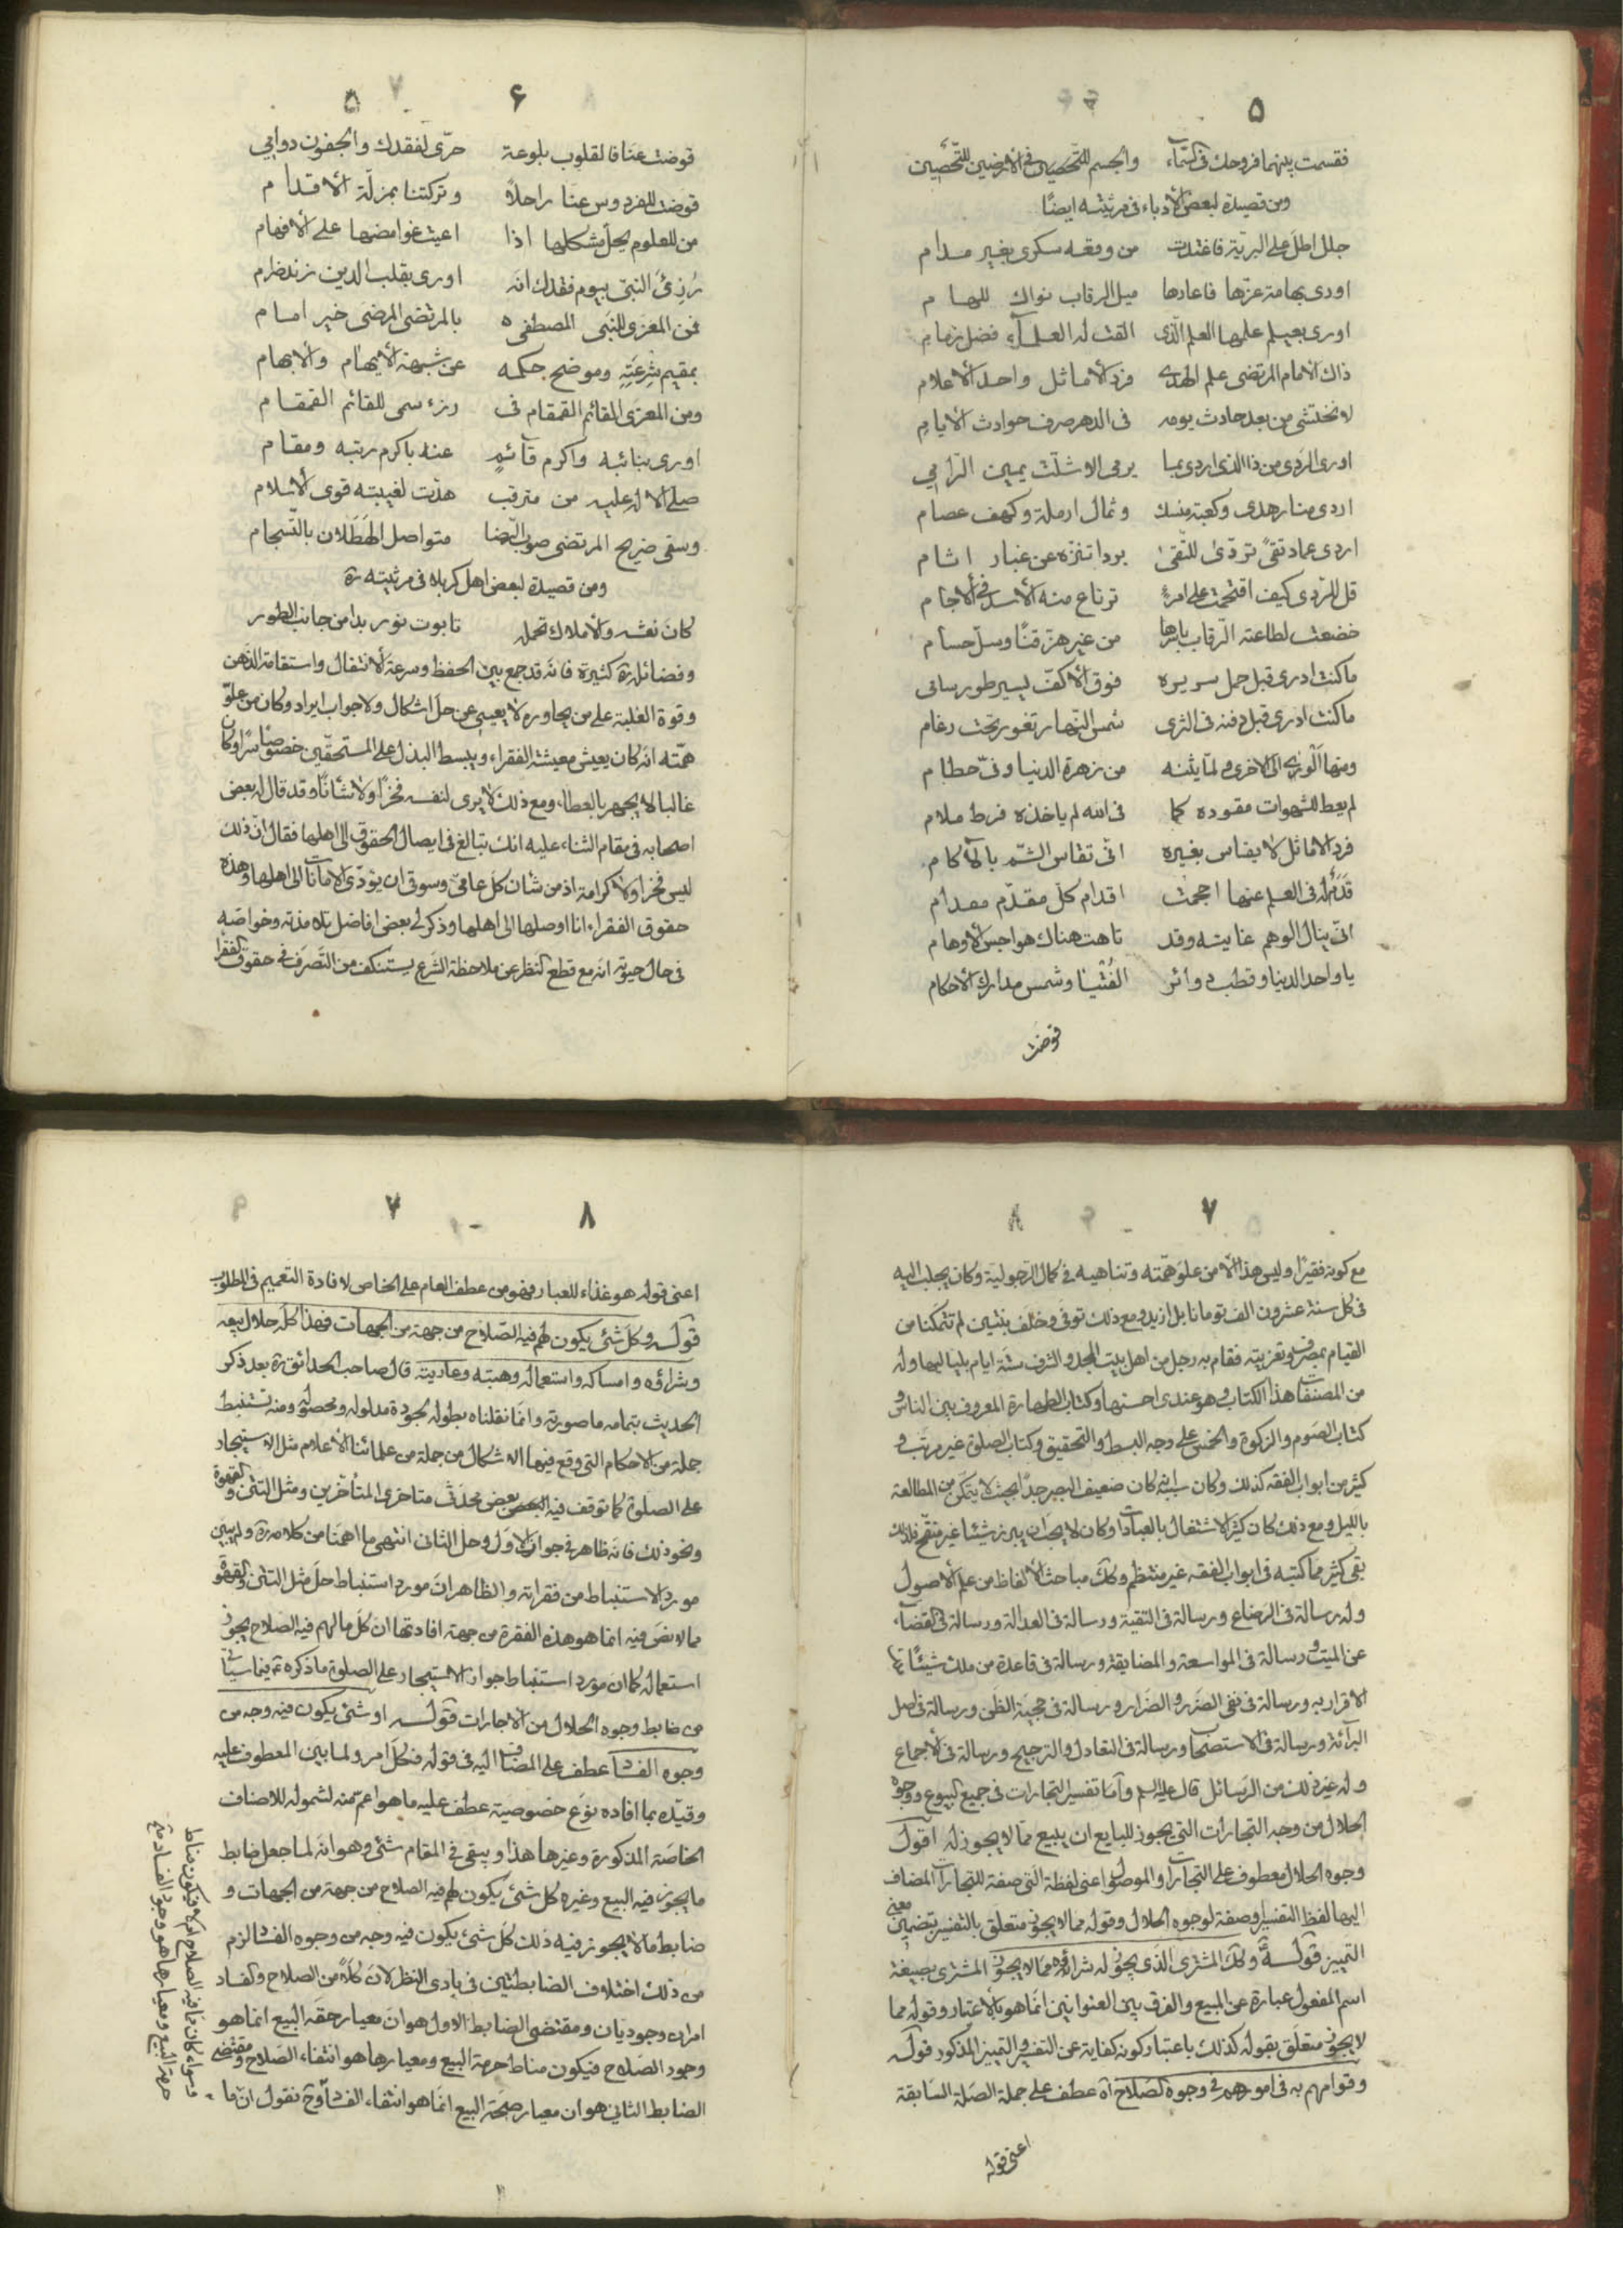 ۵
فقسمت بينهما فروحك فى السّماء والجسم للتّحصين فى الارضين للتّحصين
ومن قصيدة لبعض الأدباء فى مرثيته ايضًا
جلل اطلّ على البريّة فاغتدت من وقعه سكرى بغير مدام
اودى بهامة عزّها فاعادها ميل الرقاب نواك للهام
اورى بعيلم علمها العلم الّذى القت له العلماء فضل زمام
ذاك الامام المرتضى علم الهدى فرد الأماثل واحد الأعلام
لا نختشى من بعد حادث يومه فى الدهر صرف حوادث الأيام
اورى الردى من ذا الذى اردى بما يرمى الا شلّت يمين الرامي
اردى منار هدى وكعبة منسك وثمال ارملة وكهف عصام
اردى عماد تقىً تردّى للتّقى بردا تنزه عن غبار اثام
قل للرّدى كيف اقتحمت على امرءٍ ترتاع منه الأسد فى الأجام
خضعت لطاعته الرّقاب باسرها من غير هزّ قنًا وسلّ حسام
ما كنت ادرى قبل حمل سريره فوق الأكفّ ليسير طور سامى
ما كنت ادرى قبل دفنه فى الثرى شمس النّهار تغور تحت رغام
من زهرة الدنيا وفىّ حطام
لم يعط للشهوات مقوده كما فى الله لم ياخذه فرط ملام
فرد الأماثل لا يقاس بغيره انّى تقاس الشّم بالآكام
قدم له فى العلم عنها احجمت اقدام كلّ مقدّم مقدام
انّى ينال الوهم غايته وقد تاهت هناك هواجس الأوهام
يا واحد الدنيا وقطب دوائر الفُتْيا وشمس مدارك الأحكام
قوضت
۶ ۵
قوضت عنّا فالقلوب بلوعة حرّى لفقدك والجفون دوامي
قوضت للفردوس عنّا راحلاً وتركتنا بمزلّة الأقدام
من للعلوم يحلّ مشكلها اذا اعيت غوامضها على الأفهام
رُزِئَ النبىّ بيوم فقدك انّه اورى بقلب الدين زند ضرام
فمن المعزى للنّبى المصطفى بالمرتضى المرضى خير امام
بمقيم شرعته وموضح حكمه عن شبهة الأيهام والابهام
ومن المعزى القائم القمقام فى رزء سمى للقائم القمقام
اورى بنائبه واكرم قائم عنه باكرم رتبه ومقام
صلى الاله عليه من مترقب هدّت لغيبته قوى الاسلام
وسقى ضريح المرتضى صوب الرّضا متواصل الهَطَلان بالتّسجام
ومن قصيدة لبعض اهل كربلا فى مرثيته ره
كان نعشه والأملاك تحمله تابوت نور بدا من جانب الطور
وفضائله ره كثيرة فانّه قد جمع بين الحفظ وسرعة الأنتقال واستقامة الذهن
وقوة الغلبة على من يحاوره لا يعيى عن حلّ اشكال ولا جواب ايراد وكان من علوّ
همّته انّه كان يعيش معيشة الفقراء ويبسط البذل على المستحقّين خصوصًا سرًا وكان
غالبا لا يجهر بالعطاء ومع ذلك لا يرى لنفسه فخرًا ولا شانًا وقد قال له بعض
اصحابه فى مقام الثناء عليه انك تبالغ فى ايصال الحقوق الى اهلها فقال انّ ذلك
ليس فخرًا ولا كرامة اذ من شان كلّ عامىّ وسوقى ان يؤدّى الامانات الى اهلها وهذه
حقوق الفقراء انا اوصلها الى اهلها وذكر لى بعض افاضل تلامذته وخواصّه
فى حال حيوته انّه مع قطع النظر عن ملاحظة الشرع يستنكف من التّصرف فى حقوق الفقرا
۷
مع كونه فقيرًا وليس هذا الا من علوّ همّته وتناهيه فى كمال الرجوليّة وكان يجلب اليه
فى كل سنة عشرون الف تومانا بل ازيد ومع ذلك توفى وخلّف بنتين لم تتمكنا من
القيام بمصرف تعزيته فقام به رجل من اهل بيت المجد والشرف ستّة ايام بلياليها وله
من المصنفات هذا الكتاب وهو عندى احسنها وكتاب الطهارة المعروف بين الناس و
كتاب الصّوم والزكوة والخمس على وجه البسط والتحقيق وكتاب الصلوة غير مرتب و
كثير من ابواب الفقه كذلك وكان سببه كان ضعيف البصر جدًا بحيث لا يتمكن من المطالعة
بالليل ومع ذلك كان كثير الاشتغال بالعبادات وكان لا يحب ان يبرز شيئا غير منقّح فلذلك
بقى كثير مما كتبه فى ابواب الفقه غير منتظم وكك مباحث الألفاظ من علم الأصول
وله رسالة فى الرضاع ورسالة فى التقية ورسالة فى العدالة ورسالة فى القضاء
عن الميت ورسالة فى المواسعة والمضايقة ورسالة فى قاعدة من ملك شيئًا ملك
الاقرار به ورسالة فى نفى الضّرر والضّرار ورسالة فى حجيّة الظّن ورسالة فى اصل
البرائة ورسالة فى الاستصحاب ورسالة فى التعادل والترجيح ورسالة فى الاجماع
وله غير ذلك من الرّسائل قال عليه السلم وامّا تفسير التجارات فى جميع البيوع ووجوه
الحلال من وجه التجارات التى يجوز للبايع ان يبيع ممّا لا يجوز له اقول
وجوه الحلال معطوف على التجارات والموصول اعنى لفظة الّتى صفة للتجارات المضاف
اليها لفظ التفسير او صفة لوجوه الحلال وقوله مما لا يجوز متعلّق بالتفسير بتضمين معنى
التمييز قوله وكك المشترى الّذى يجوز له شرائه ممّا لا يجوز المشترى بصيغة
اسم المفعول عبارة عن المبيع والفرق بين العنوانين انّما هو بالأعتبار وقوله مما
لا يجوز متعلّق بقوله كذلك باعتبار كونه كناية عن التفسير والتمييز المذكور قوله
وقوامهم به فى امورهم فى وجوه الصّلاح اه عطف على جملة الصّلة السّابقة
اعنى قوله
۸ ۷
اعنى قوله هو غذاء للعباد فهو من عطف العام على الخاص لافادة التعميم فى المطلوب
قوله وكلّ شئ يكون لهم فيه الصّلاح من جهة من الجهات فهذا كلّه حلال بيعه
وشراؤه وامساكه واستعماله وهبته وعاريته قال صاحب الحدائق ره بعد ذكر
الحديث بتمامه ما صورته وانّما نقلناه بطوله لجودة مدلوله ومحصوله ومنه تستنبط
جملة من الاحكام التى وقع فيها الاشكال من جملة من علمائنا الأعلام مثل الاستيجار
على الصلوة كما توقف فيه بعض محدّثى متاخرى المتأخّرين ومثل التتن والقهوة
ونحو ذلك فانّه ظاهر فى جواز الاول وحل الثانى انتهى ما اهمّنا من كلامه ره ولم يبين
مورد الاستنباط من فقراته والظاهر انّ مورد استنباط حلّ مثل التتن والقهوة
مما لا نصّ فيه انما هو هذه الفقرة من جهة افادتها ان كلّ ما لهم فيه الصلاح يجوز
استعماله كما ان مورد استنباط جواز الاستيجار على الصلوة ما ذكره ع فيما سيأتى
من ضابط وجوه الحلال من الاجارات قوله او شئ يكون فيه وجه من
وجوه الفساد عطف على المضاف اليه فى قوله فكلّ امر ولما بين المعطوف عليه
وقيّده بما افاده نوع خصوصية عطف عليه ما هو اعمّ منه لشموله للاصناف
الخاصّة المذكورة وغيرها هذا ويبقى فى المقام شئ وهو انّه لما جعل ضابط
ما يجوز فيه البيع وغيره كل شئ يكون لهم فيه الصلاح من جهة من الجهات و
ضابط ما لا يجوز فيه ذلك كلّ شئ يكون فيه وجه من وجوه الفساد لزم
من ذلك اختلاف الضابطتين فى بادى النظر لانّ كلاً من الصلاح والفساد
امران وجوديان ومقتضى الضابط الاول هو انّ معيار صحّة البيع انما هو
وجود الصلاح فيكون مناط حرمة البيع ومعيارها هو انتفاء الصّلاح ومقتضى
الضابط الثانى هو ان معيار صحّة البيع انما هو انتفاء الفساد وح نقول ان ما
وسواء كان فيه الصلاح ام لا فيكون مناط
حرمة البيع ومعيارها هو وجود الفساد فيه